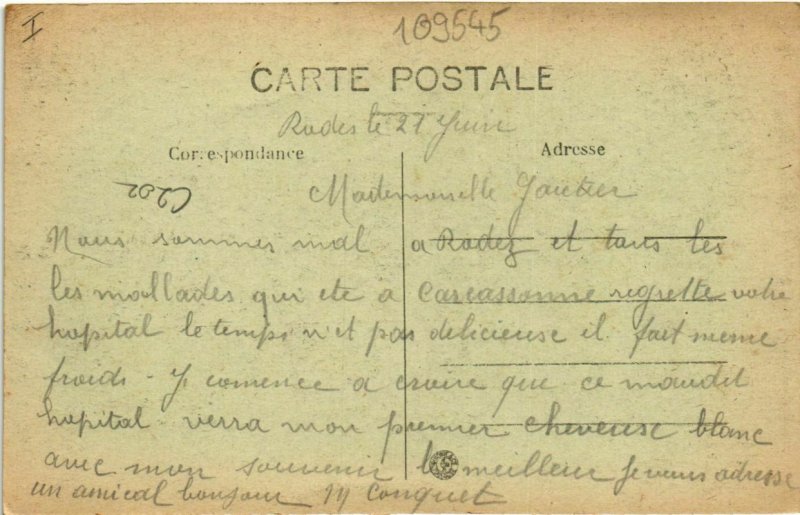 I
109545
CARTE POSTALE
Rodes le 21 Juin
Correspondance
Adresse
C202
Mademoiselle Gautier
Nous sommes mal a Rodez et tous les
les mallades qui ete a Carcassonne regrette votre
hopital le temps n'et pas delicieuse il fait meme
froids - Je comence a croire que ce maudit
hopital verra mon premier cheveuse blanc
avec mon souvenir le meilleur Je vous adresse
un amical bonjour M Conquet